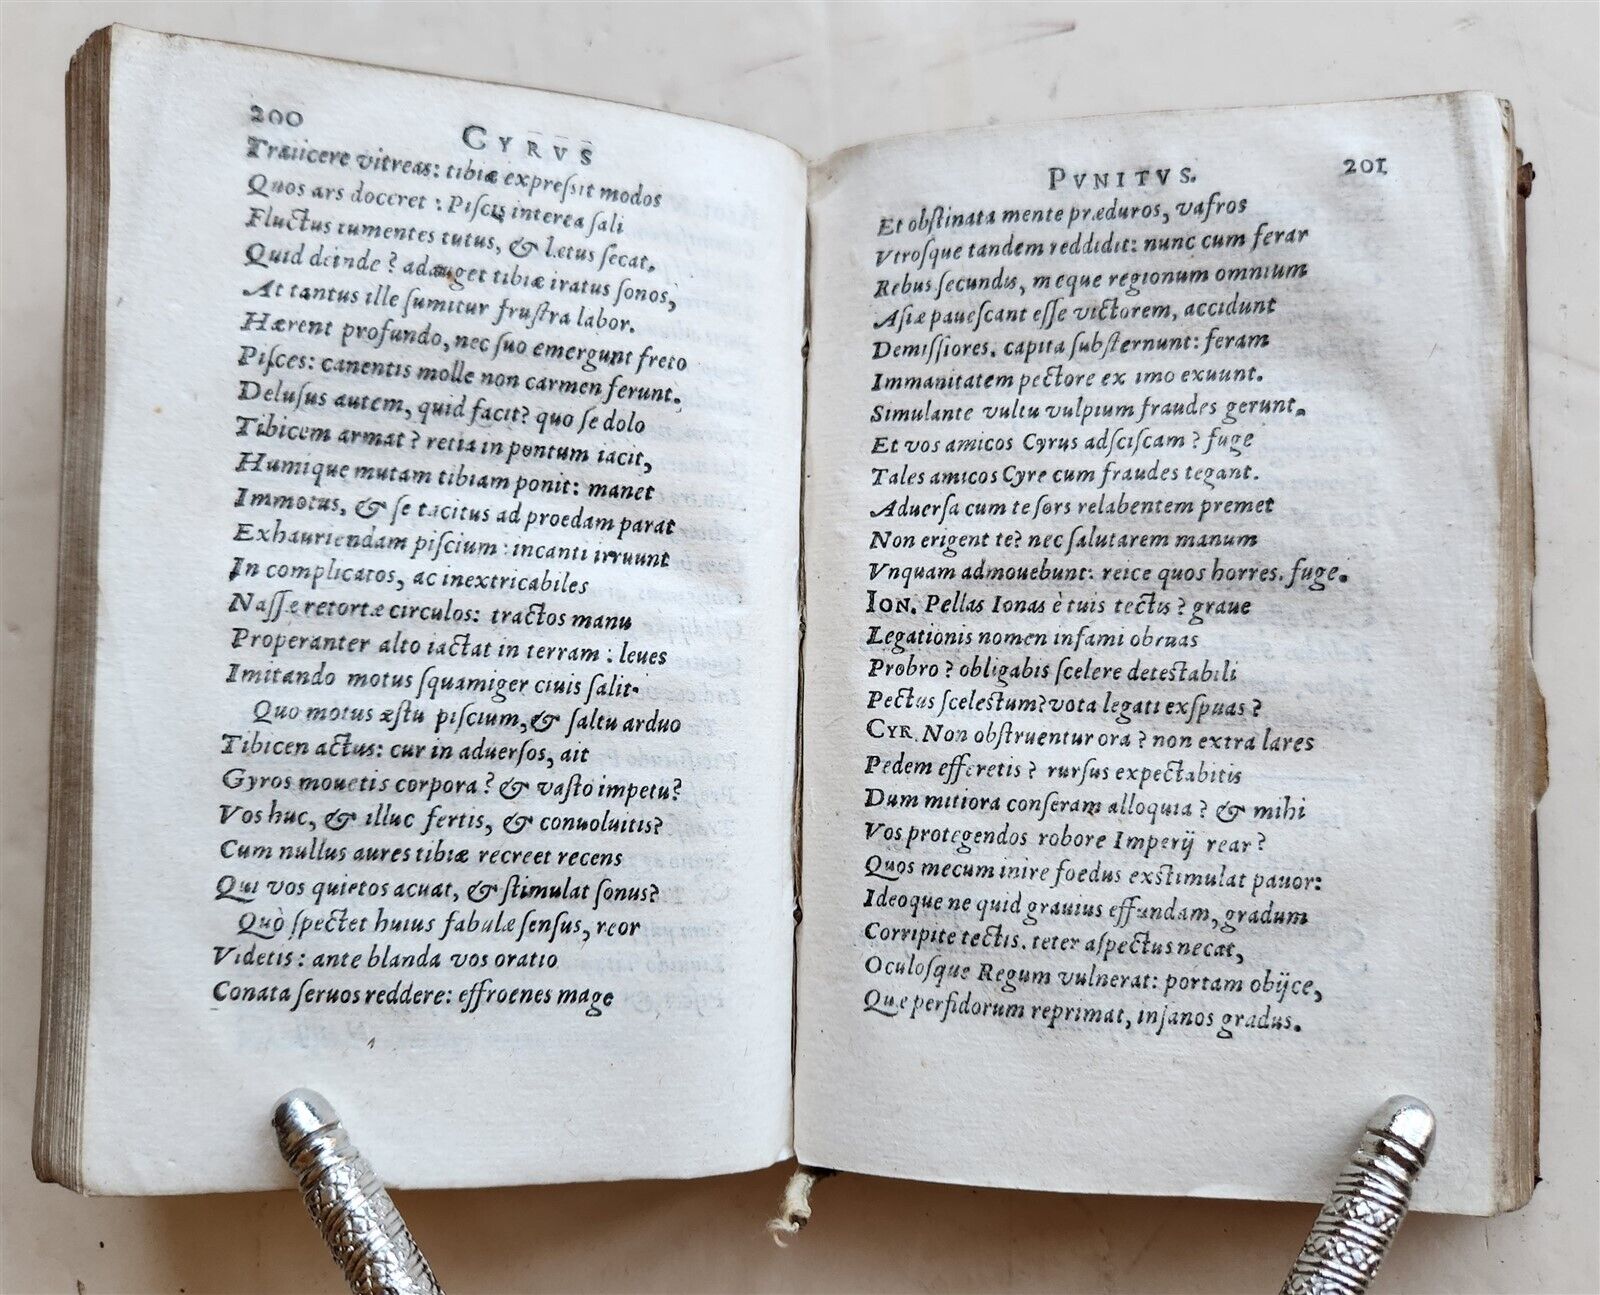 200
CYRVS
Traiicere vitreas: tibiæ expreſsit modos
Quos ars doceret : Piſcis interea ſali
Fluctus tumentes tutus, & lætus ſecat.
Quid deinde ? adauget tibiæ iratus ſonos,
At tantus ille ſumitur fruſtra labor.
Hærent profundo, nec ſuo emergunt freto
Piſces: canentis molle non carmen ferunt.
Deluſus autem, quid facit? quo ſe dolo
Tibicem armat ? retia in pontum iacit,
Humique mutam tibiam ponit: manet
Immotus, & ſe tacitus ad proedam parat
Exhauriendam piſcium : incauti irruunt
In complicatos, ac inextricabiles
Naſſæ retortæ circulos: tractos manu
Properanter alto iactat in terram : leues
Imitando motus ſquamiger ciuis ſalit.
Quo motus æſtu piſcium, & ſaltu arduo
Tibicen actus: cur in aduerſos, ait
Gyros mouetis corpora? & vaſto impetu?
Vos huc, & illuc fertis, & conuoluitis?
Cum nullus aures tibiæ recreet recens
Qui vos quietos acuat, & ſtimulat ſonus?
Quò ſpectet huius fabulæ ſenſus, reor
Videtis : ante blanda vos oratio
Conata ſeruos reddere: effroenes mage
PVNITVS.
201
Et obſtinata mente præduros, vafros
Vtroſque tandem reddidit: nunc cum ferar
Rebus ſecundis, meque regionum omnium
Aſiæ paueſcant eſſe victorem, accidunt
Demiſſiores. capita ſubſternunt: feram
Immanitatem pectore ex imo exuunt.
Simulante vultu vulpium fraudes gerunt.
Et vos amicos Cyrus adſciſcam ? fuge
Tales amicos Cyre cum fraudes tegant.
Aduerſa cum te ſors relabentem premet
Non erigent te? nec ſalutarem manum
Vnquam admouebunt: reice quos horres. fuge.
ION. Pellas Ionas è tuis tectis ? graue
Legationis nomen infami obruas
Probro ? obligabis ſcelere detestabili
Pectus ſcelestum? vota legati exſpuas ?
CYR. Non obſtruentur ora ? non extra lares
Pedem efferetis ? rurſus expectabitis
Dum mitiora conſeram alloquia ? & mihi
Vos protegendos robore Imperij rear ?
Quos mecum inire foedus exstimulat pauor:
Ideoque ne quid grauius effundam, gradum
Corripite tectis. teter aſpectus necat,
Oculoſque Regum vulnerat: portam obijce,
Quæ perfidorum reprimat, inſanos gradus.